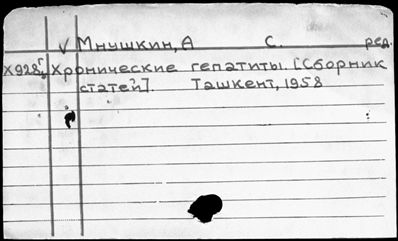 √ Мнушкин, А С. ред.
X928 Хронические гепатиты. [Сборник
статей]. Ташкент, 1958